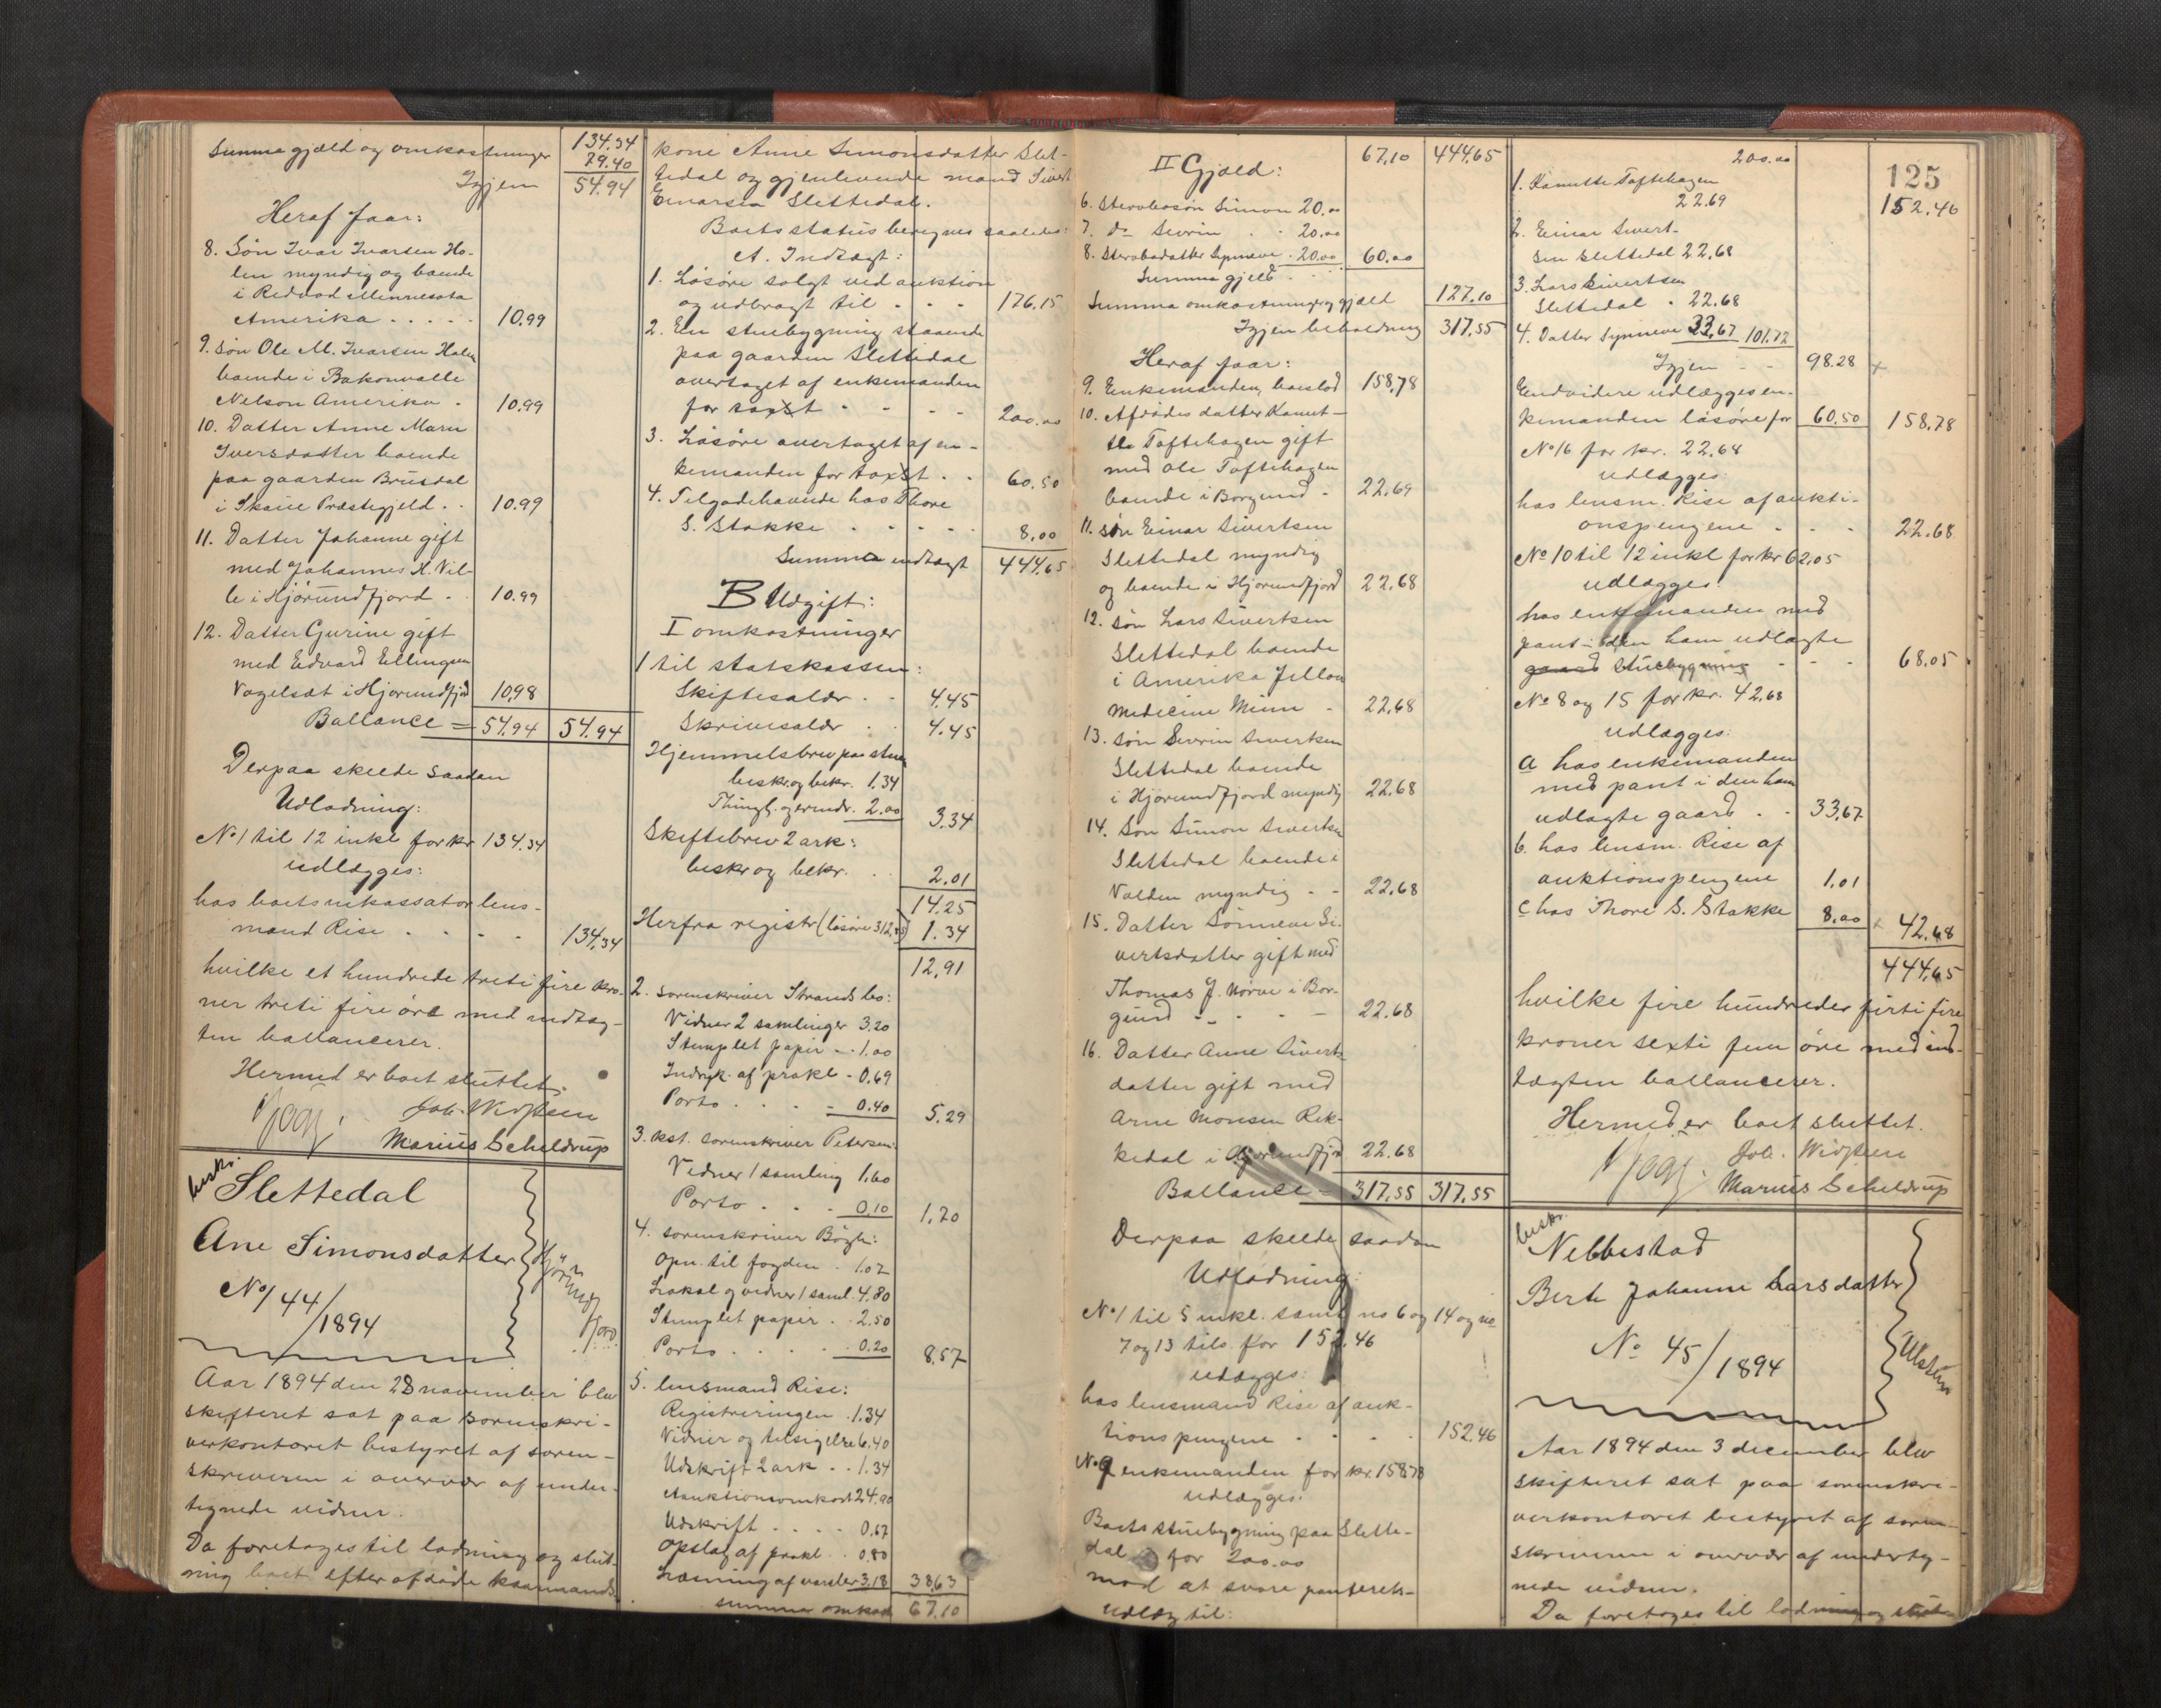 Summa gjæld og omkostninger 134.34
79.40
Igjen 54.94
Heraf faar:
8. Søn Ivar Ivarsen Ho-
len myndig og boende
i Redvod Minnesota
Amerika . . . . . 10.99
9. Søn Ole M. Ivarsen Holen
boende i
Nelson Amerika . 10.99
10. Datter Anne Marie
Iversdatter boende
paa gaarden Brusdal
i Skoue Præstegjeld . . 10.99
11. Datter Johanne gift
med Johannes K. Vil-
le i Hjørundfjord . 10.99
12. Datter Gurine gift
med Edvard Ellingsen
Vogelsæt i Hjørundfjord 10.98
Ballance = 54.94 54.94
Derpaa skeede saadan
Udlodning:
No 1 til 12 inkl for kr 134.34
udlægges:
hos boets inkassator lens-
mand Rise . . . . 134.34
hvilke et hundrede treti fire kro-
ner treti fire øre med indtæg-
ten ballancerer.
Hermed er boet sluttet.
Joh. Widsteen
Marius Scheldrup
beskr.
Slettedal
Ane Simonsdatter
No 44/1894
Hjørundfjord
Aar 1894 den 28 november blev
skifteret sat paa sorenskri-
verkontoret bestyret af soren-
skriveren i overvær af under-
tegnede vidner.
Da foretages til lodning og slut-
ning boet efter afdøde kaarmands
kone Anne Simonsdatter Slet-
tedal og gjenlevende mand Sivert
Einarsen Slettedal.
Boets status beregnes saaledes:
A. Indtægt:
1. Løsøre solgt ved auktion
og udbragt til . . . 176.15
2. En stuebygning staaende
paa gaarden Slettedal
overtaget af enkemanden
for taxst . . . . 200.00
3. Løsøre overtaget af en-
kemanden for taxst . . 60.50
4. Tilgodehavende hos Thore
S. Stokke . . . . . 8.00
Summa indtægt 444.65
B Udgift:
I omkostninger
1 til statskassen:
Skiftesalær . . 4.45
Skriversalær . . 4.45
Hjemmelsbrev paa stuen
beskr. og bekr. 1.34
Thingl. og erindr. 2.00 3.34
Skiftebrev 2 ark:
beskr og bekr. . . 2.01
14.25
Herfra registr (løsøre 312,45) 1.34
12.91
2. sorenskriver Strands bo:
Vidner 2 samlinger 3.20
Stemplet papir . . 1.00
Indryk. af prokl - 0.69
Porto . . . - 0.40 5.29
3. kst. sorenskriver Petersen:
Vidner 1 samling 1.60
Porto . . . 0.10 1.70
4. sorenskriver Bögh:
Opn. til fogden . 1.07
Lokal og vidner 1 saml. 4.80
Stemplet papir . . 2.50
Porto . . . . . 0.20 8.57
5. lensmand Rise:
Registreringen . 1.34
Vidner og tilsigelse 6.40
Udskrift 2 ark . . 1.34
Auktionsomkost 24.90
Udskrift . . . . 0.67
Opslag af prokl . . 0.80
Læsning af varsler 3.18 38.63
summa omkost 67.10
II Gjæld: 67.10 444.65
6. Stervbosøn Simon 20.00
7. do Severin . . 20.00
8. Stervbodatter Synneve . 20.00 60.00
Summa gjeld . .
Summa omkostninger og gjæld 127.10
Igjen beholdning 317.55
Heraf faar:
9. Enkemanden, boeslod 158.78
10. Afdødes datter Kanut-
te Toftehagen gift
med Ole Toftehagen
boende i Borgund . 22.69
11. søn Einar Sivertsen
Slettedal myndig
og boende i Hjørundfjord 22.68
12. søn Lars Sivertsen
Slettedal boende
i Amerika Jellow
Medicine Minn . 22.68
13. søn Severin Sivertsen
Slettedal boende
i Hjørundfjord myndig 22.68
14. Søn Simon Sivertsen
Slettedal boende i
Volden myndig . - 22.68
15. Datter Sønneve Si-
vertsdatter gift med
Thomas J. Nørve i Bor-
gund - - . . - 22.68
16. Datter Anne Siverts-
datter gift med
Arne Monsen Rek-
kedal i Hjørundfjord 22.68
Ballance = 317.55 317.55
Derpaa skeede saadan
Udlodning:
No 1 til 5 inkl. samt no 6 og 14 og no
7 og 13 tils. for 152.46
udlægges:
hos lensmand Rise af auk-
tionspengene . . . . 152.46
No 9 enkemanden for kr. 158.78
udlægges:
Boets stuebygning paa Slette-
dal for 200.00
mod at svare panterets-
udlæg til:
125
200.00
152.46
1. Kanutte Toftehagen
22.69
2. Einar Sivert-
sen Slettedal 22.68
3. Lars Sivertsen
Slettedal . 22.68
4. Datter Synneve 33.67 101.72
Igjen - - 98.28
Endvidere udlægges en-
kemanden løsøre for 60.50 158.78
No 16 for kr. 22.68
udlægges:
hos lensm. Rise af aukti-
onspengene . . . 22.68
No 10 til 12 inkl for kr 62.05
udlægges:
hos enkemanden med
pant i den ham udlagte
gaard stuebygning - - - 68.05
No 8 og 15 for kr. 42.68
udlægges:
a hos enkemanden
med pant i den ham
udlagte gaard . . 33.67
b. hos lensm. Rise af
auktionspengene 1.01
c hos Thore S. Stokke 8.00 42.68
444.65
hvilke fire hundreder firti fire
kroner sexti fem øre med ind-
tægten ballancerer.
Hermed er boet sluttet.
Joh. Widsteen
Marius Scheldrup
beskr.
Nebbestad
Berte Johanne Larsdatter
No 45/1894
Ulstein
Aar 1894 den 3 december blev
skifteret sat paa sorenskri-
verkontoret bestyret af soren-
skriveren i overvær af underteg-
nede vidner.
Da foretages til lodning og slut-